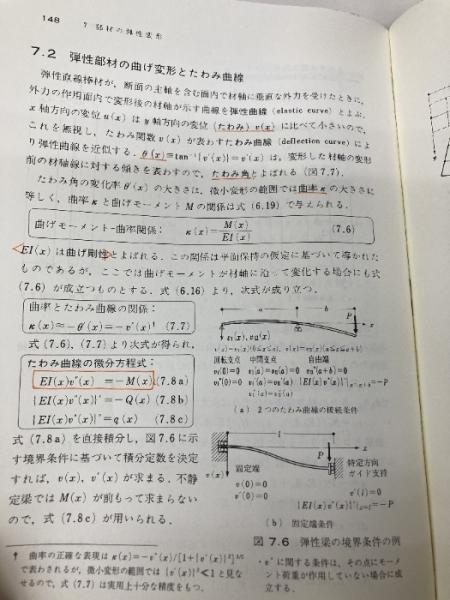 148
7 部材の弾性変形
7.2 弾性部材の曲げ変形とたわみ曲線
弾性直線棒材が，断面の主軸を含む面内で材軸に垂直な外力を受けたときに，
外力の作用面内で変形後の材軸が示す曲線を弾性曲線（elastic curve）とよぶ．
x 軸方向の変位 u(x) は y 軸方向の変位（たわみ）v(x) に比べて小さいので，
これを無視し，たわみ関数 v(x) が表わすたわみ曲線（deflection curve）によ
り弾性曲線を近似する．θ(x)≡tan⁻¹{v′(x)}≒v′(x) は，変形した材軸の変形
前の材軸線に対する傾きを表わすので，たわみ角とよばれる（図7.7）．
たわみ角の変化率 θ′(x) の大きさは，微小変形の範囲では曲率 κ の大きさに
等しく，曲率 κ と曲げモーメント M の関係は式 (6.19) で与えられる．
曲げモーメント-曲率関係： κ(x)=M(x)/EI(x) (7.6)
EI(x) は曲げ剛性とよばれる．この関係は平面保持の仮定に基づいて導かれた
ものであるが，ここでは曲げモーメントが材軸に沿って変化する場合にも式
(7.6) が成立つものとする．式 (6.16) より，次式が成り立つ．
曲率とたわみ曲線の関係：
κ(x)≒−θ′(x)=−v″(x)† (7.7)
式 (7.6)，(7.7) より次式が得られ，
たわみ曲線の微分方程式：
EI(x)v″(x) =−M(x) (7.8 a)
{EI(x)v″(x)}′=−Q(x) (7.8 b)
{EI(x)v″(x)}″=q(x) (7.8 c)
式 (7.8a) を直接積分し，図7.6に示
す境界条件に基づいて積分定数を決定
すれば，v(x)，v′(x) が求まる．不静
定梁では M(x) が前もって求まらない
ので，式 (7.8c) が用いられる．
† 曲率の正確な表現は κ(x)=−v″(x)/[1+{v′(x)}²]³ᐟ²
で表わされるが，微小変形の範囲では {v′(x)}²≪1 と見な
せるので，式 (7.7) は実用上十分な精度をもつ．
P
x
回転支点 中間支点 自由端
(a) 2つのたわみ曲線の接続条件
l
P
x
v(x)
固定端
v(0)=0
v′(0)=0
特定方向
ガイド支持
v′(l)=0
{EI(x)v″(x)}′|ₓ₌ₗ=−P
(b) 固定端条件
図 7.6 弾性梁の境界条件の例
・v″ に関する条件は，その点にモーメ
ント荷重が作用していない場合に成
立する．